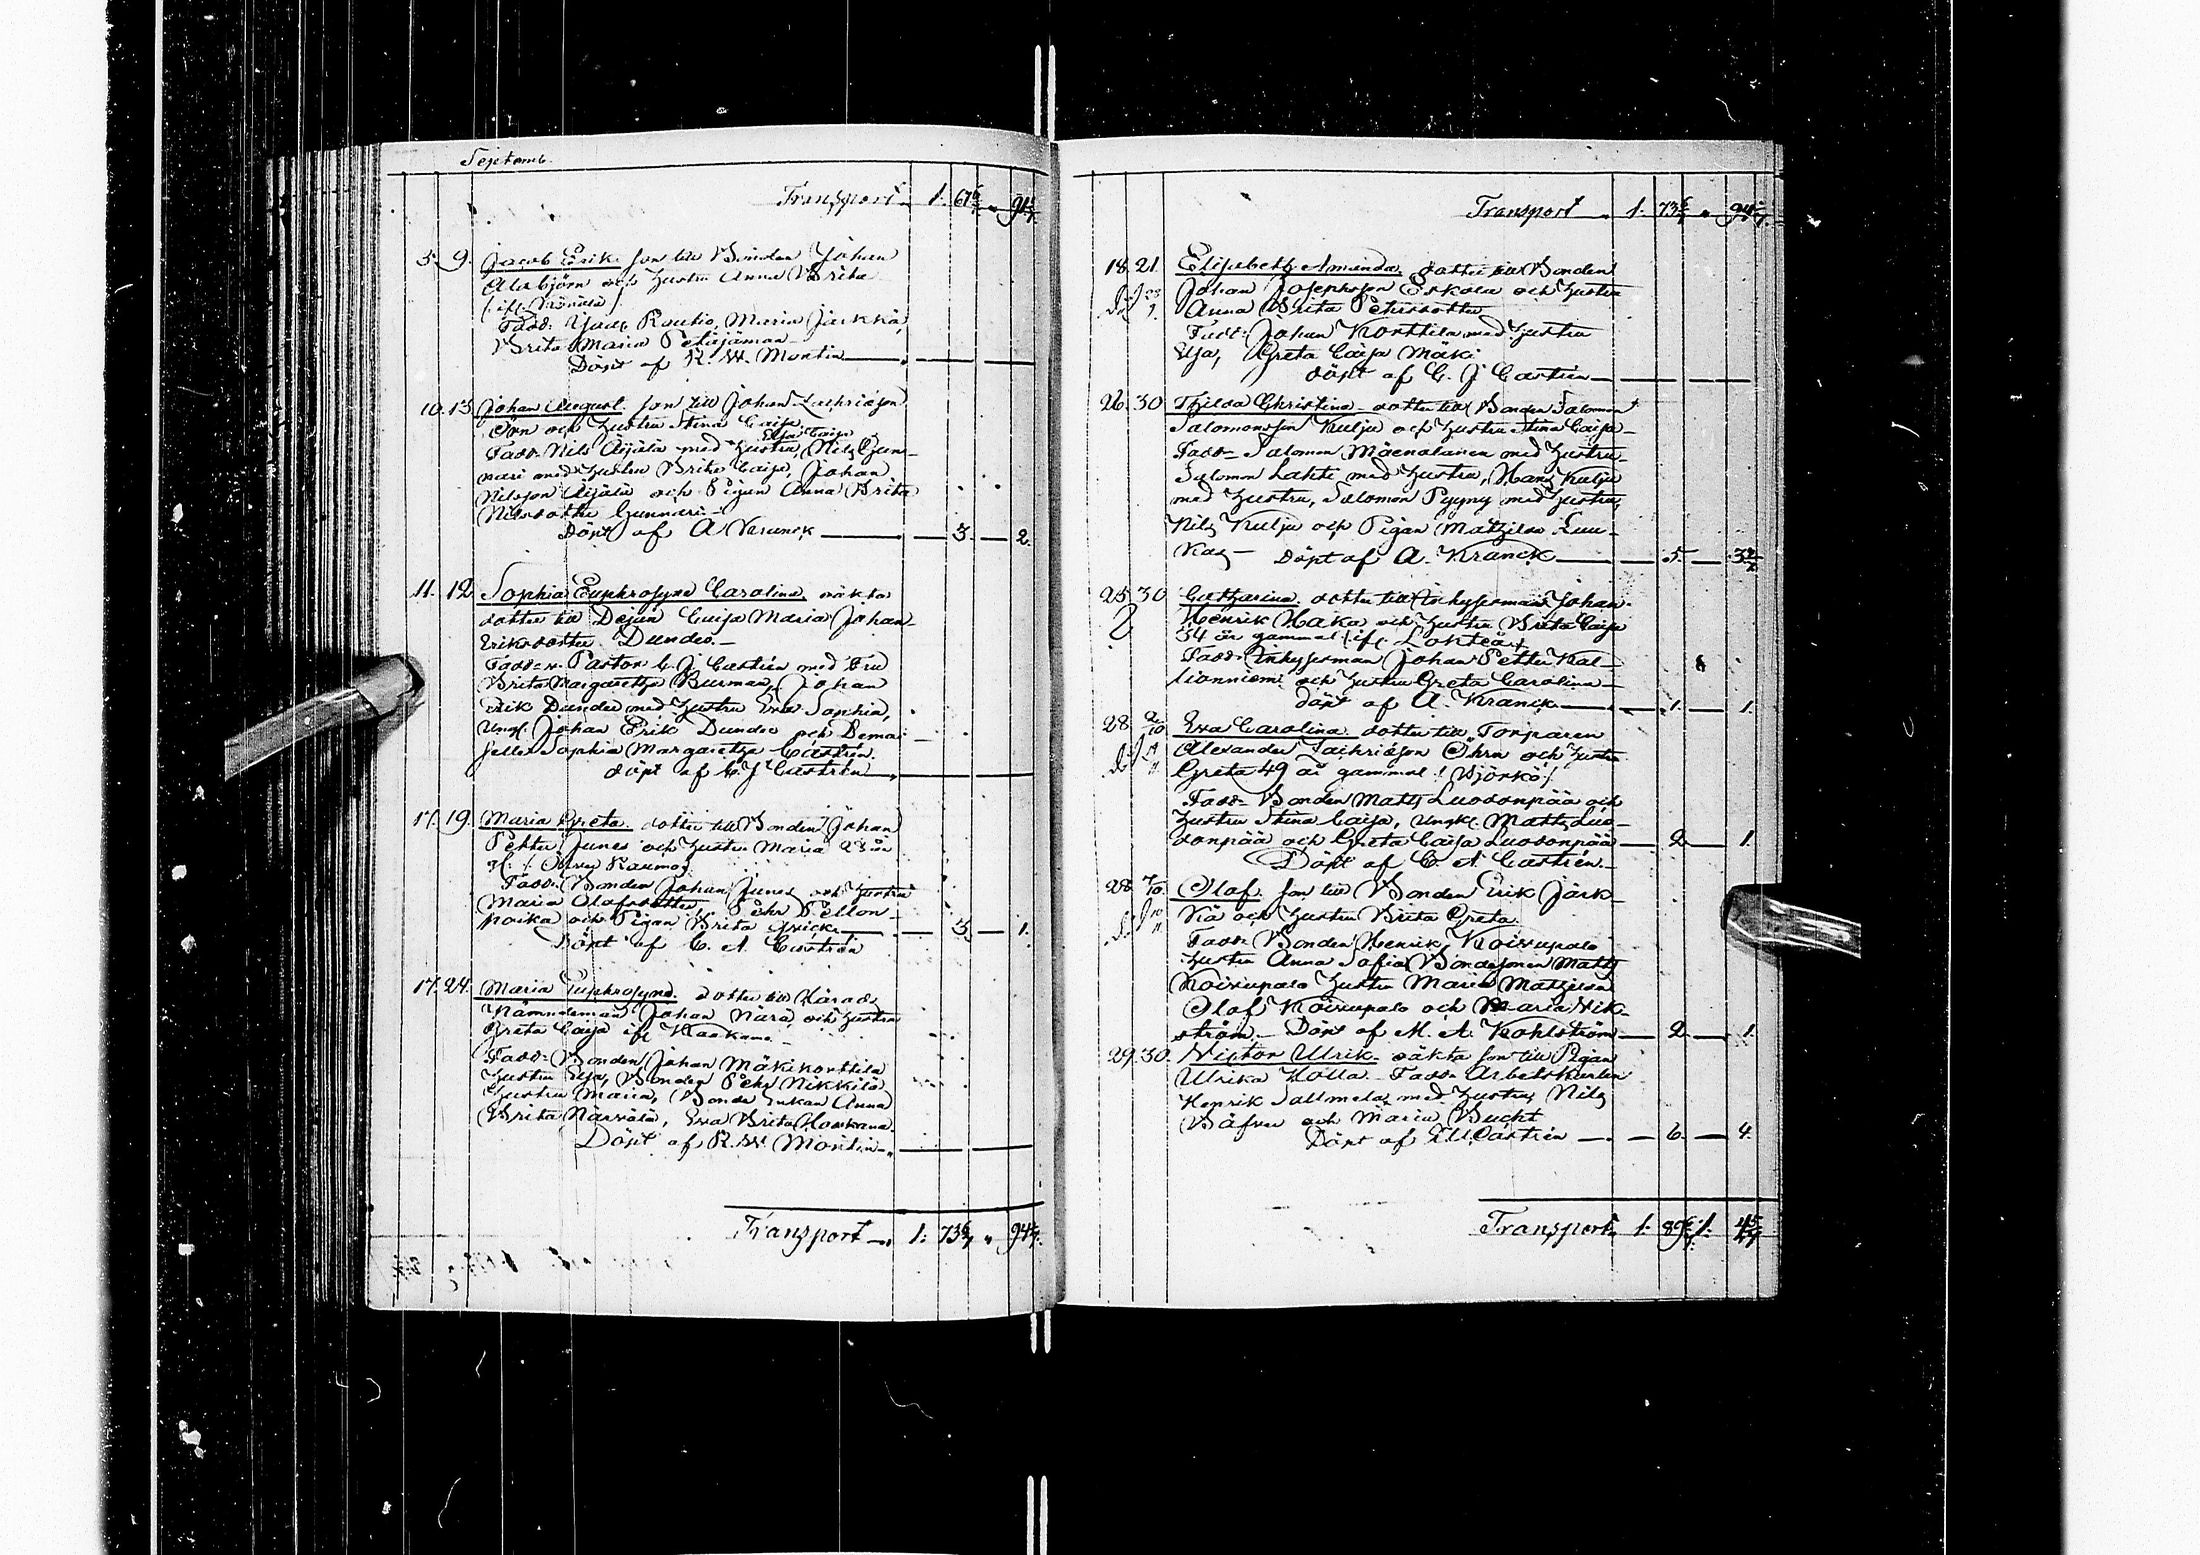 Septemb.
Transport 1. 67 6/7 " 91 5/7
5. 9. Jacob Erik son till Bonden Johan
och hustru Anna Brita
Fadd: Rautio, Maria Jarkkä,
Brita Maria Petäjämaa
Döpt af R. W. Montin
10. 13. Johan August son till Johan Zachrisson
Örn och hustru Stina Caisa
Elsa Caisa
Fadd. Nils Äijälä med hustru, Nils Gun-
nari med hustru Brita Caisa, Johan
Nilsson Äijälä och Pigan Anna Brita
Nilsdotter Gunnari
Döpt af A Kranck 3. 2.
11. 12 Sophia Euphrosyne Carolina oäkta
dotter till Dejan Caisa Maria Johan
Eriksdotter Dunder
Fadd. v. Pastor C. J. Castrén med Fru
Brita Margaretha Burman, Johan
Erik Dunder med hustru Eva Sophia,
Ungk. Johan Erik Dunder och Dema-
selle Sophia Margaretha Castrén
döpt af C. J Castrén
17. 19. Maria Greta dotter till Bonden Johan
Petter Junes och hustru Maria 23 år
gl. Raumo
Fadd. Bonden Johan Junes och hustru
Maria Olofsdotter Pehr Pellon-
poika och Pigan Brita 3. 1.
Döpt af C. A. Castrén
17. 24. Maria Euphrosyne dotter till Härads
Nämndeman Johan Nara och hustru
Greta Caisa if. Kaakama
Fadd. Bonden Johan Mäkikorttila
hustru Elsa, Bonden Pehr Nikkilä
hustru Maria, Bonde Enkan Anna
Brita Närvälä, Eva Brita
Döpt af R. W. Montin
Transport 1. 73 6/7 " 94 5/7.
Transport 1. 73 6/7 " 94 5/7
18. 21. Elisabeth Amanda dotter till Bonden
Johan Josephsson Eskola och hustru
Anna Brita Pehrsdotter
Fadd: Johan Korttila med hustru
Elsa, Greta Caisa Mäki
döpt af C. J Castrén
26. 30 Thilda Christina dotter till Bonden Salomon
Salomonsson Kulju och hustru Stina Caisa
Fadd. Salomon Mäenalanen med hustru
Salomon Lahti med hustru, Hans Kulju
med hustru, Salomon Pyyny med hustru,
Nils Kulju och Pigan Matzilda Luu-
kas Döpt af A. Kranck 5. 3 2/7
25. 30 Catharina dotter till Inhysesman Johan
Henrik Haka och hustru Brita Caisa
34 år gammal if. Lohteå
Fadd. Inhysesman Johan Petter Kal-
lionniemi och hustru Greta Carolina
döpt af A. Kranck 1. 1.
28. 2/10 Eva Carolina dotter till Torparen
Alexander Zachrisson Öhrn och hustru
Greta 49 år gammal / Björkö /
Fadd. Bonden Matts Luodonpää och
hustru Stina Caisa, ungk. Matts Luo-
donpää och Greta Caisa Luodonpää 2. 1.
Döpt af C. A. Castrén
28. 7/10. Olof son till Bonden Erik Järk-
kä och hustru Brita Greta
Fadd. Bonden Henrik Koivupalo
hustru Anna Sofia Bondesonen Matts
Koivupalo hustru Maria Matzilda
Olof Koivupalo och Maria Wik-
ström. Döpt af M. A. Kohlström 2. 1.
29. 30. Victor Ulrik oäkta son till Pigan
Ulrika Kolla Fadd. Arbetskarlen
Henrik Sallmela med hustru, Nils
Bäfver och Maria Bucht
Döpt af Castrén 6. 4.
Transport 1. 89 6/7. 1. 4 5/7